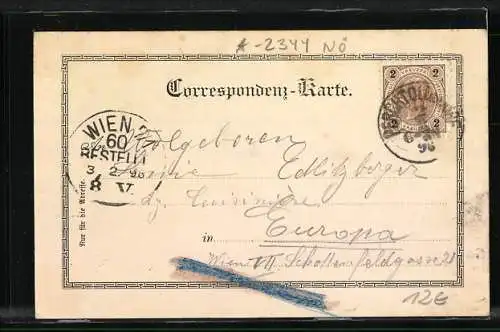 *-2344 NÖ
2 2
Correspondenz-Karte.
2 2
WIEN
60
BESTELLT
3 2 98
8 V
Nur für die Adresse.
Wolgeboren
Edlitzberger
Europa
in
Wien VII Schottenfeldgasse 21
12€